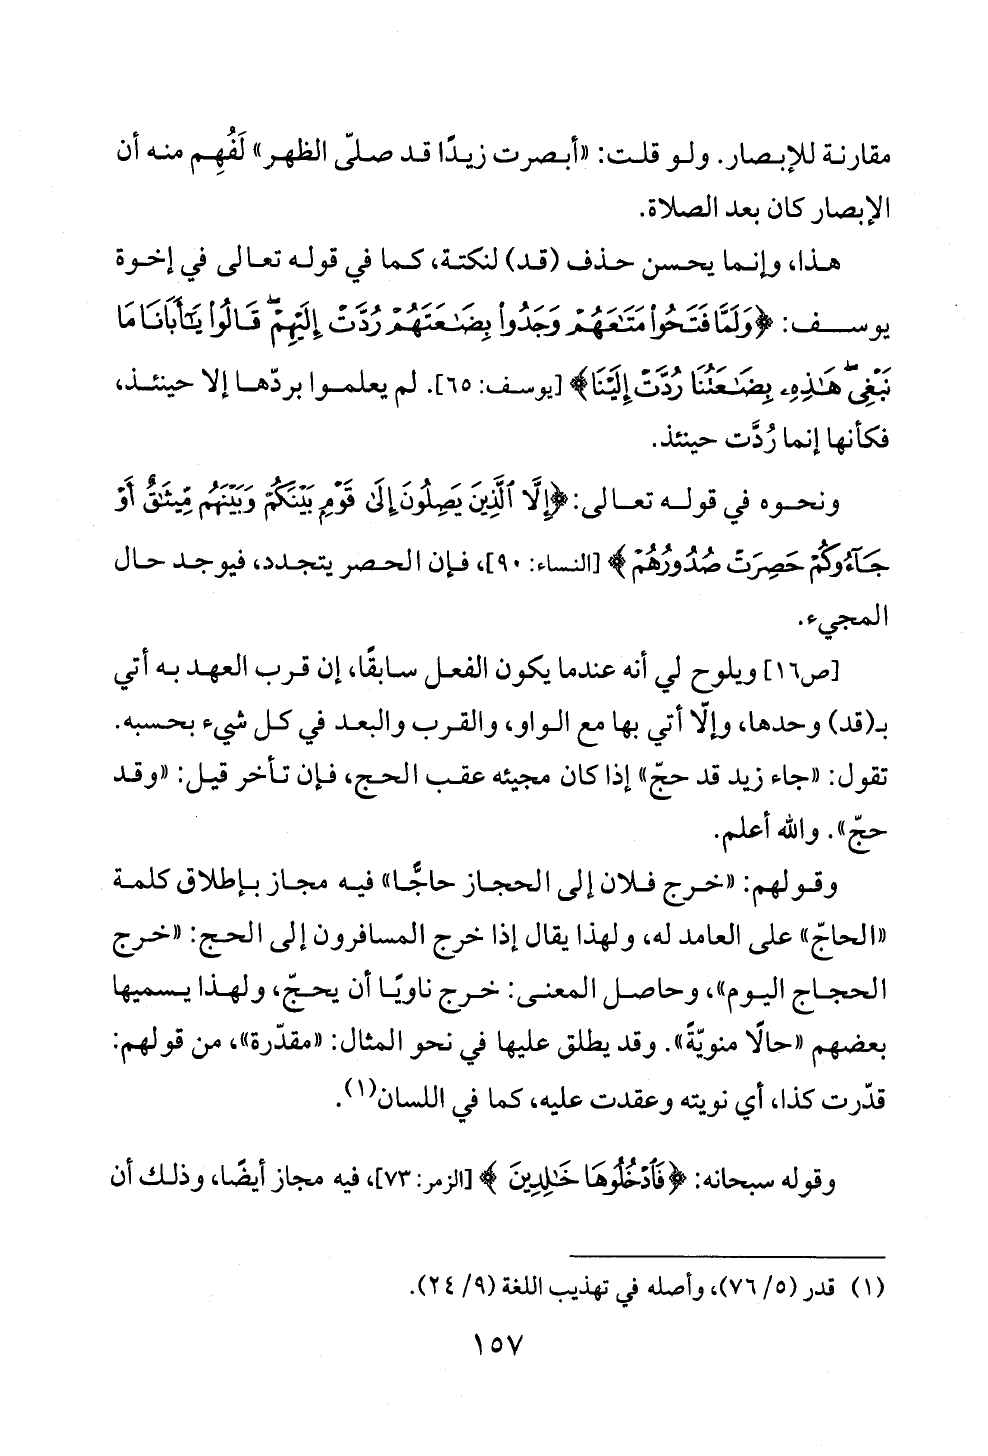 مقارنة للإبصار. ولو قلت: «أبصرت زيدًا قد صلّى الظهر» لَفُهِم منه أن
الإبصار كان بعد الصلاة.
هذا، وإنما يحسن حذف (قد) لنكتة، كما في قوله تعالى في إخوة
يوسف: ﴿وَلَمَّا فَتَحُوا۟ مَتَٰعَهُمْ وَجَدُوا۟ بِضَٰعَتَهُمْ رُدَّتْ إِلَيْهِمْ ۖ قَالُوا۟ يَٰٓأَبَانَا مَا
نَبْغِى ۖ هَٰذِهِۦ بِضَٰعَتُنَا رُدَّتْ إِلَيْنَا﴾ [يوسف: ٦٥]. لم يعلموا بردّها إلا حينئذ،
فكأنها إنما رُدَّت حينئذ.
ونحوه في قوله تعالى: ﴿إِلَّا ٱلَّذِينَ يَصِلُونَ إِلَىٰ قَوْمٍۭ بَيْنَكُمْ وَبَيْنَهُم مِّيثَٰقٌ أَوْ
جَآءُوكُمْ حَصِرَتْ صُدُورُهُمْ﴾ [النساء: ٩٠]، فإن الحصر يتجدد، فيوجد حال
المجيء.
[ص١٦] ويلوح لي أنه عندما يكون الفعل سابقًا، إن قرب العهد به أتي
بـ(قد) وحدها، وإلّا أتي بها مع الواو، والقرب والبعد في كل شيء بحسبه.
تقول: «جاء زيد قد حجّ» إذا كان مجيئه عقب الحج، فإن تأخر قيل: «وقد
حجّ». والله أعلم.
وقولهم: «خرج فلان إلى الحجاز حاجًّا» فيه مجاز بإطلاق كلمة
«الحاجّ» على العامد له، ولهذا يقال إذا خرج المسافرون إلى الحج: «خرج
الحجاج اليوم»، وحاصل المعنى: خرج ناويًا أن يحجّ، ولهذا يسميها
بعضهم «حالًا منويّةً». وقد يطلق عليها في نحو المثال: «مقدّرة»، من قولهم:
قدّرت كذا، أي نويته وعقدت عليه، كما في اللسان(١).
وقوله سبحانه: ﴿فَٱدْخُلُوهَا خَٰلِدِينَ﴾ [الزمر: ٧٣]، فيه مجاز أيضًا، وذلك أن
(١) قدر (٥/ ٧٦)، وأصله في تهذيب اللغة (٩/ ٢٤).
١٥٧